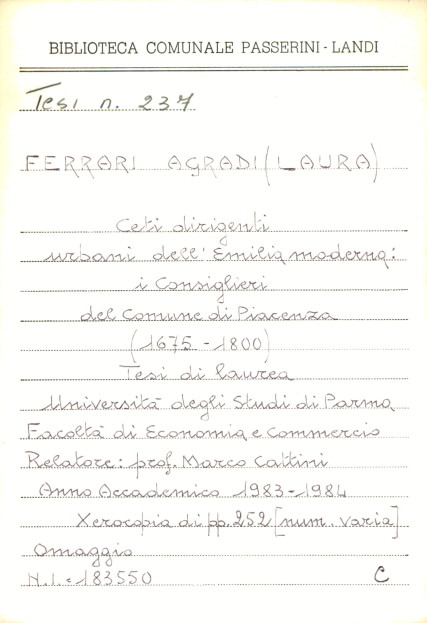 BIBLIOTECA COMUNALE PASSERINI - LANDI
Tesi n. 237
FERRARI AGRADI (LAURA)
Ceti dirigenti
urbani dell'Emilia moderna:
i Consiglieri
del Comune di Piacenza
(1675 - 1800)
Tesi di laurea
Università degli Studi di Parma
Facoltà di Economia e Commercio
Relatore: prof. Marco Cattini
Anno Accademico 1983-1984
Xerocopia di pp. 252 [num. varia]
Omaggio
N.I. = 183550 C